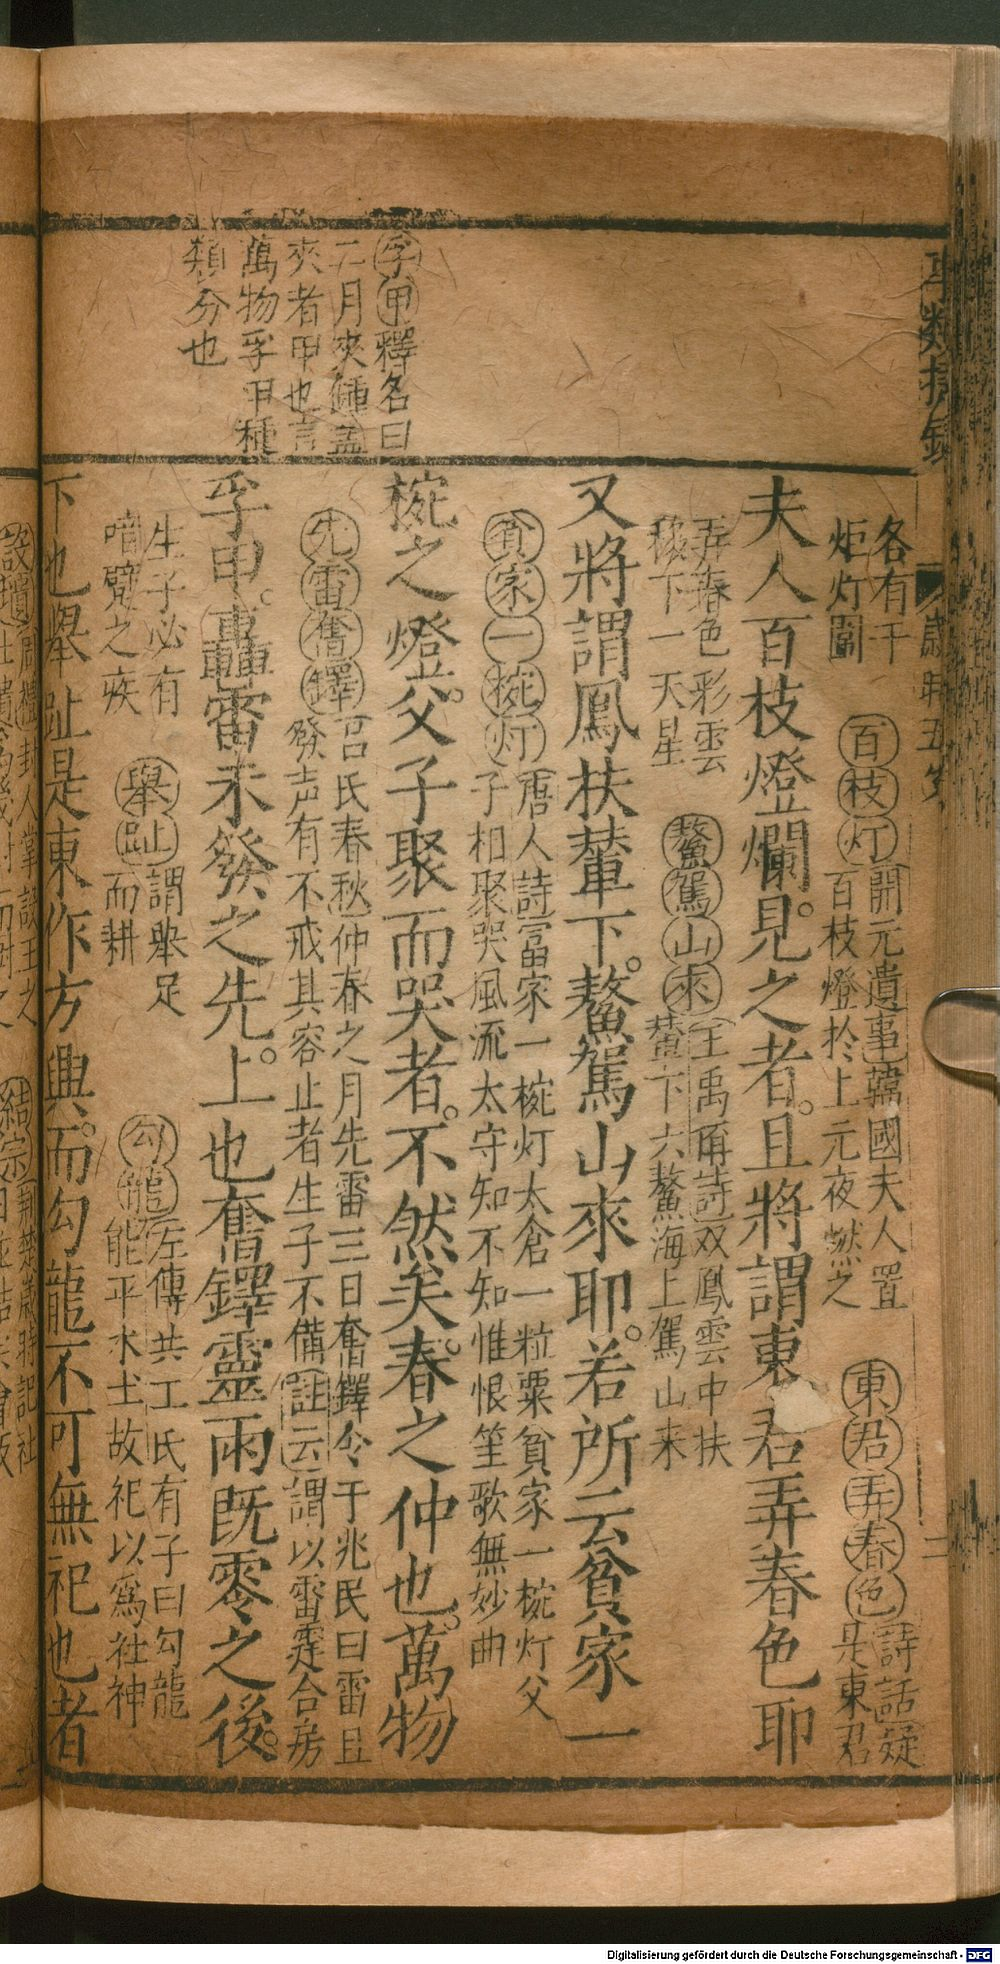 孚甲釋名曰
二月夾鍾孟
夾者甲也言
萬物孚甲種
類分也
歲時五
二
各有千
炬灯圍
百枝灯開元遺事韓國夫人置
百枝燈於上元夜燃之
東君弄春色詩話疑
是東君
夫人百枝燈爛見之者。且將謂東君弄春色耶
弄春色彩雲
移下一天星
鰲駕山來王禹偁詩双鳳雲中扶
輦下六鰲海上駕山来
又將謂鳳扶輦下。鰲駕山來耶。若所云貧家一
貧家一椀灯唐人詩富家一椀灯太倉一粒粟貧家一椀灯父
子相聚哭風流太守知不知惟恨笙歌無妙曲
椀之燈。父子聚而哭者。不然矣。春之仲也。萬物
先雷奮鐸呂氏春秋仲春之月先雷三日奮鐸令于兆民曰雷且
發声有不戒其容止者生子不備註云謂以雷霆合房
孚甲。轟雷未發之先。上也奮鐸靈雨既零之後。
生子必有
喑聾之疾
舉趾謂舉足
而耕
勾龍左傳共工氏有子曰勾龍
能平水土故祀以爲社神
下也舉趾是東作方興。而勾龍不可無祀也者
Digitalisierung gefördert durch die Deutsche Forschungsgemeinschaft - DFG